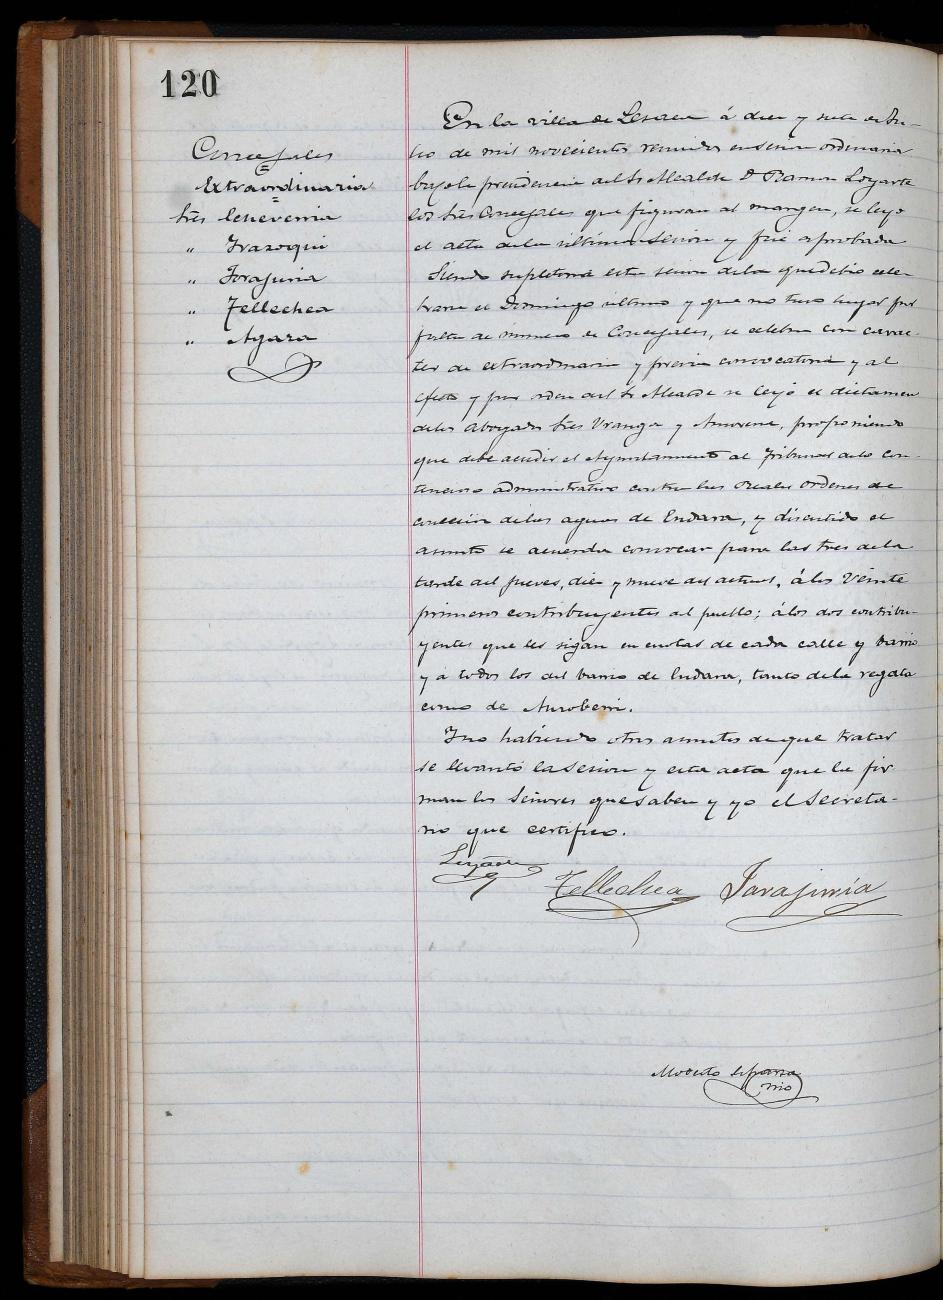 120
Concejales
=
Extraordinaria
=
Sres Echeverria
" Irazoqui
" Tarajunia
" Tellechea
" Ayara
En la villa de Lesaca á diez y siete
de mil novecientos reunidos en sesion ordinaria
bajo la presidencia del Sr Alcalde D Ramon Loyarte
los Sres Concejales que figuran al margen, se leyó
el acta de la ultima sesion y fué aprobada
Siendo supletoria esta sesion de la que debio cele-
brarse el Domingo ultimo y que no tuvo lugar por
falta de número de Concejales, se celebra con carac-
ter de extraordinaria y previa convocatoria y al
efecto y por orden del Sr Alcalde se leyó el dictamen
de los abogados Sres Uranga y, proponiendo
que debe acudir el Ayuntamiento al Tribunal de lo con-
tencioso administrativo contra las Reales ordenes de
concesión de las aguas de Endara, y discutido el
asunto se acuerda convocar para las tres de la
tarde del jueves, diez y nueve del actual, á los Veinte
primeros contribuyentes del pueblo; á los dos contribu-
yentes que les sigan en cuotas de cada calle y barrio
y á todos los del barrio de Endara, tanto de la regata
como de Auroberri.
Y no habiendo otros asuntos de que tratar
se levantó la sesion y esta acta que la fir
man los Señores que saben y yo el Secreta-
rio que certifico.
Loyarte
Tellechea Tarajunia
Modesto Esparza
srio